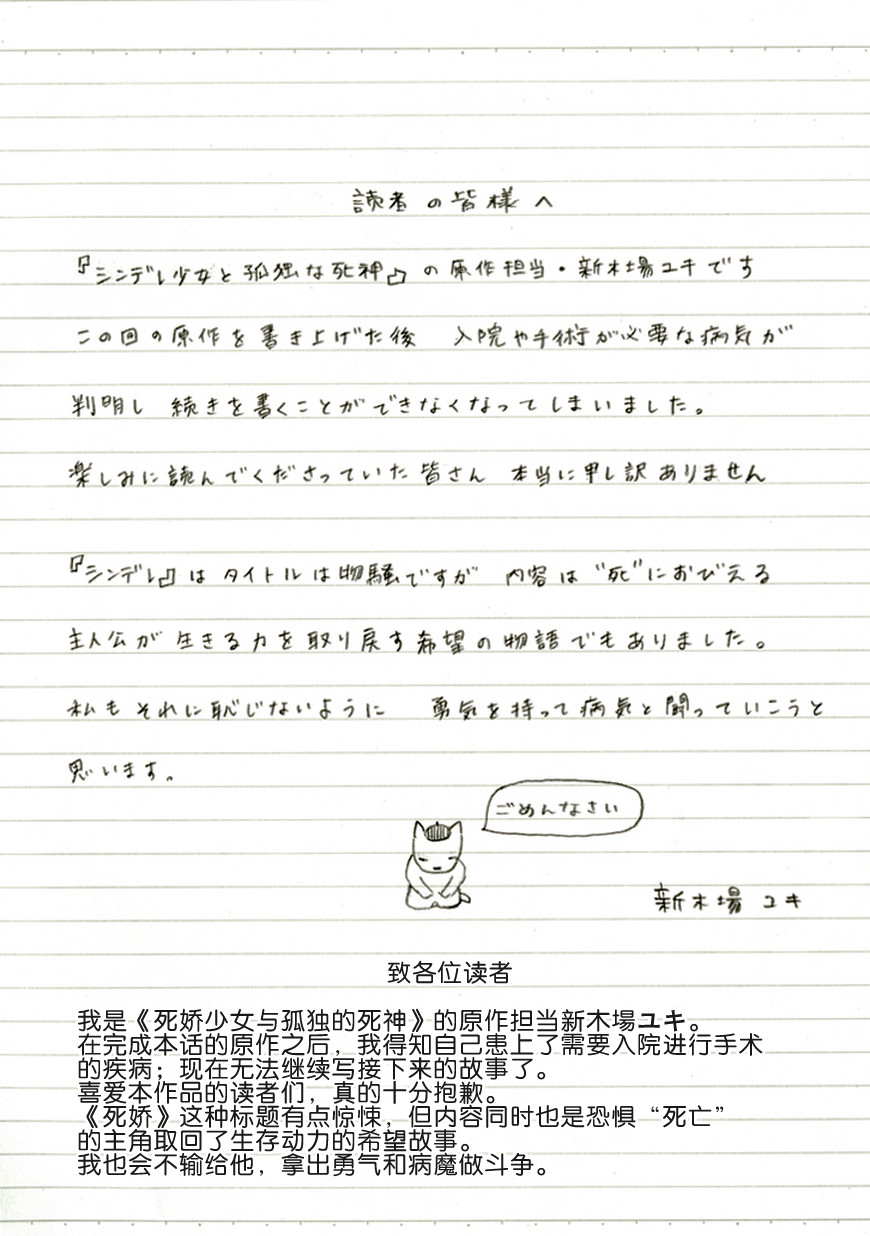 読者の皆様へ
『シンデレ少女と孤独な死神』の原作担当・新木場ユキです
この回の原作を書き上げた後　入院や手術が必要な病気が
判明し　続きを書くことができなくなってしまいました。
楽しみに読んでくださっていた皆さん　本当に申し訳ありません
『シンデレ』はタイトルは物騒ですが　内容は“死”におびえる
主人公が生きる力を取り戻す希望の物語でもありました。
私もそれに恥じないように　勇気を持って病気と闘っていこうと
思います。
ごめんなさい
新木場ユキ
致各位读者
我是《死娇少女与孤独的死神》的原作担当新木場ユキ。
在完成本话的原作之后，我得知自己患上了需要入院进行手术
的疾病；现在无法继续写接下来的故事了。
喜爱本作品的读者们，真的十分抱歉。
《死娇》这种标题有点惊悚，但内容同时也是恐惧“死亡”
的主角取回了生存动力的希望故事。
我也会不输给他，拿出勇气和病魔做斗争。